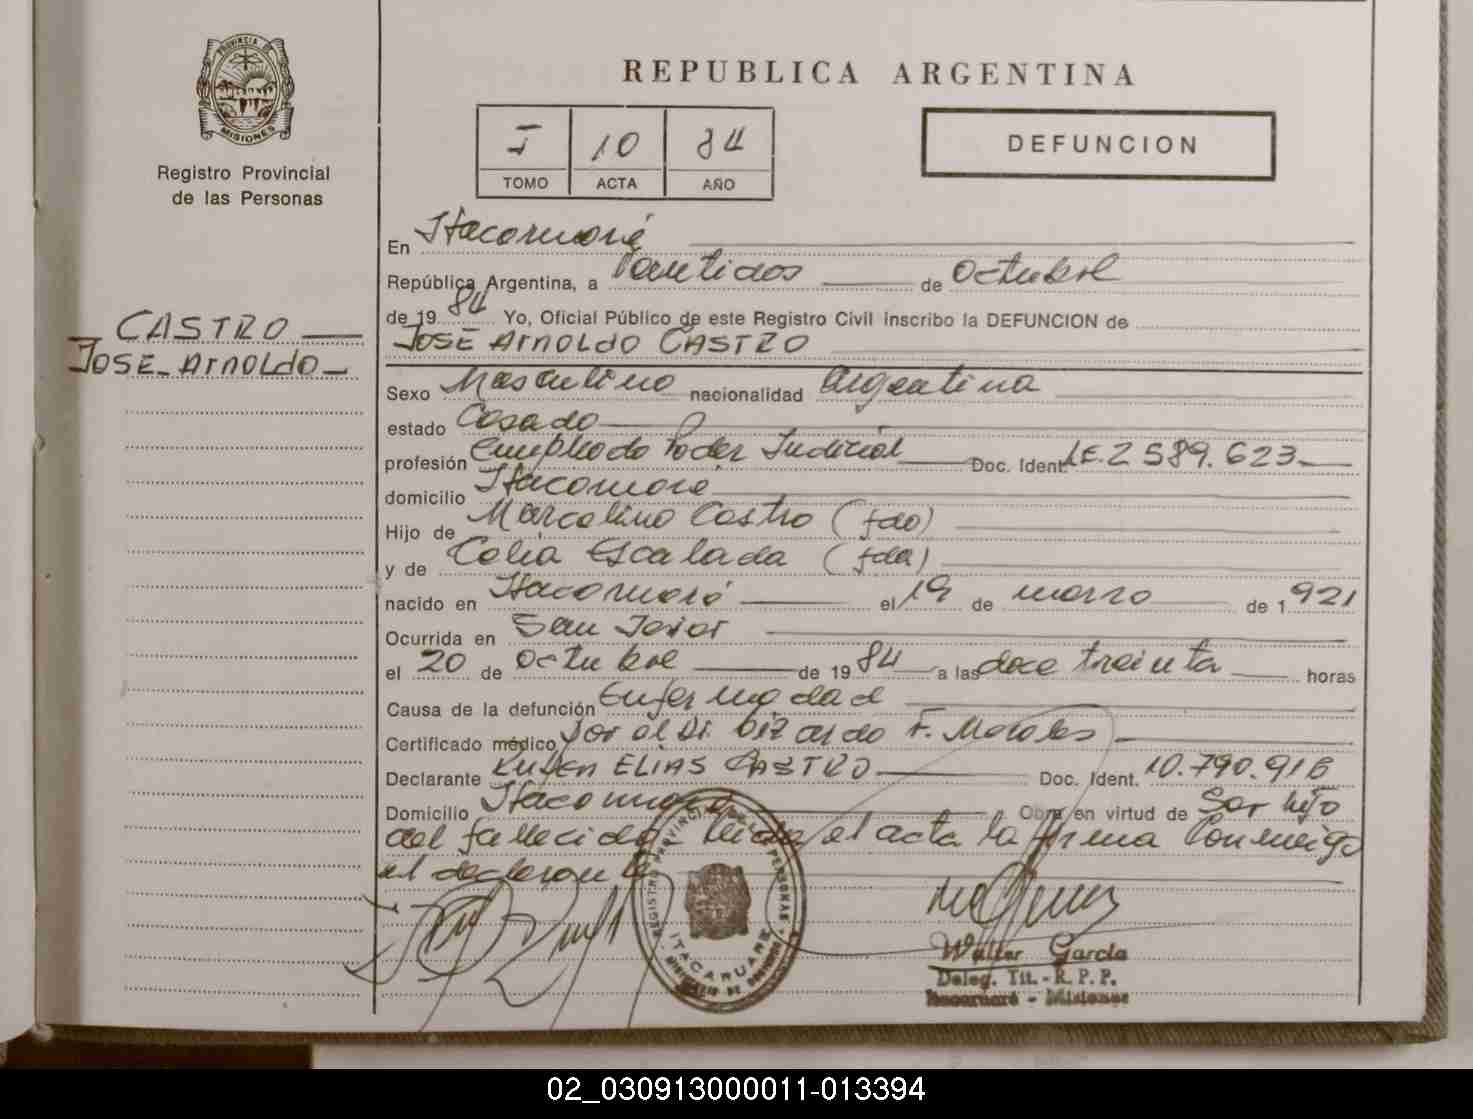 PROVINCIA DE
MISIONES
Registro Provincial
de las Personas
CASTRO
JOSE ArnoLdo
REPUBLICA ARGENTINA
I 10 84
TOMO ACTA AÑO
DEFUNCION
En Itacaruaré
República Argentina, a Veintidos de Octubre
de 19 84 Yo, Oficial Público de este Registro Civil inscribo la DEFUNCION de
JOSE ArnoLdo CASTRO
Sexo Masculino nacionalidad Argentina
estado Casado
profesión Empleado Poder Judicial Doc. Ident. LE. 2 589.623
domicilio Itacaruaré
Hijo de Marcelino Castro (fdo)
y de Celia Escalada (fda)
nacido en Itacaruaré el 19 de marzo de 1 921
Ocurrida en San Javier
el 20 de Octubre de 19 84 a las doce treinta horas
Causa de la defunción Enfermedad
Certificado médico por el Dr. F. Morales
Declarante RUBEN ELIAS CASTRO Doc. Ident. 10.790.918
Domicilio Itacaruaré Obra en virtud de Ser hijo
del fallecido Leida el acta la firma Conmigo
el declarante
REGISTRO PROVINCIAL DE LAS PERSONAS
ITACARUARE
Walter García
Deleg. Tit. - R. P. P.
Itacaruaré - Misiones
02_030913000011-013394